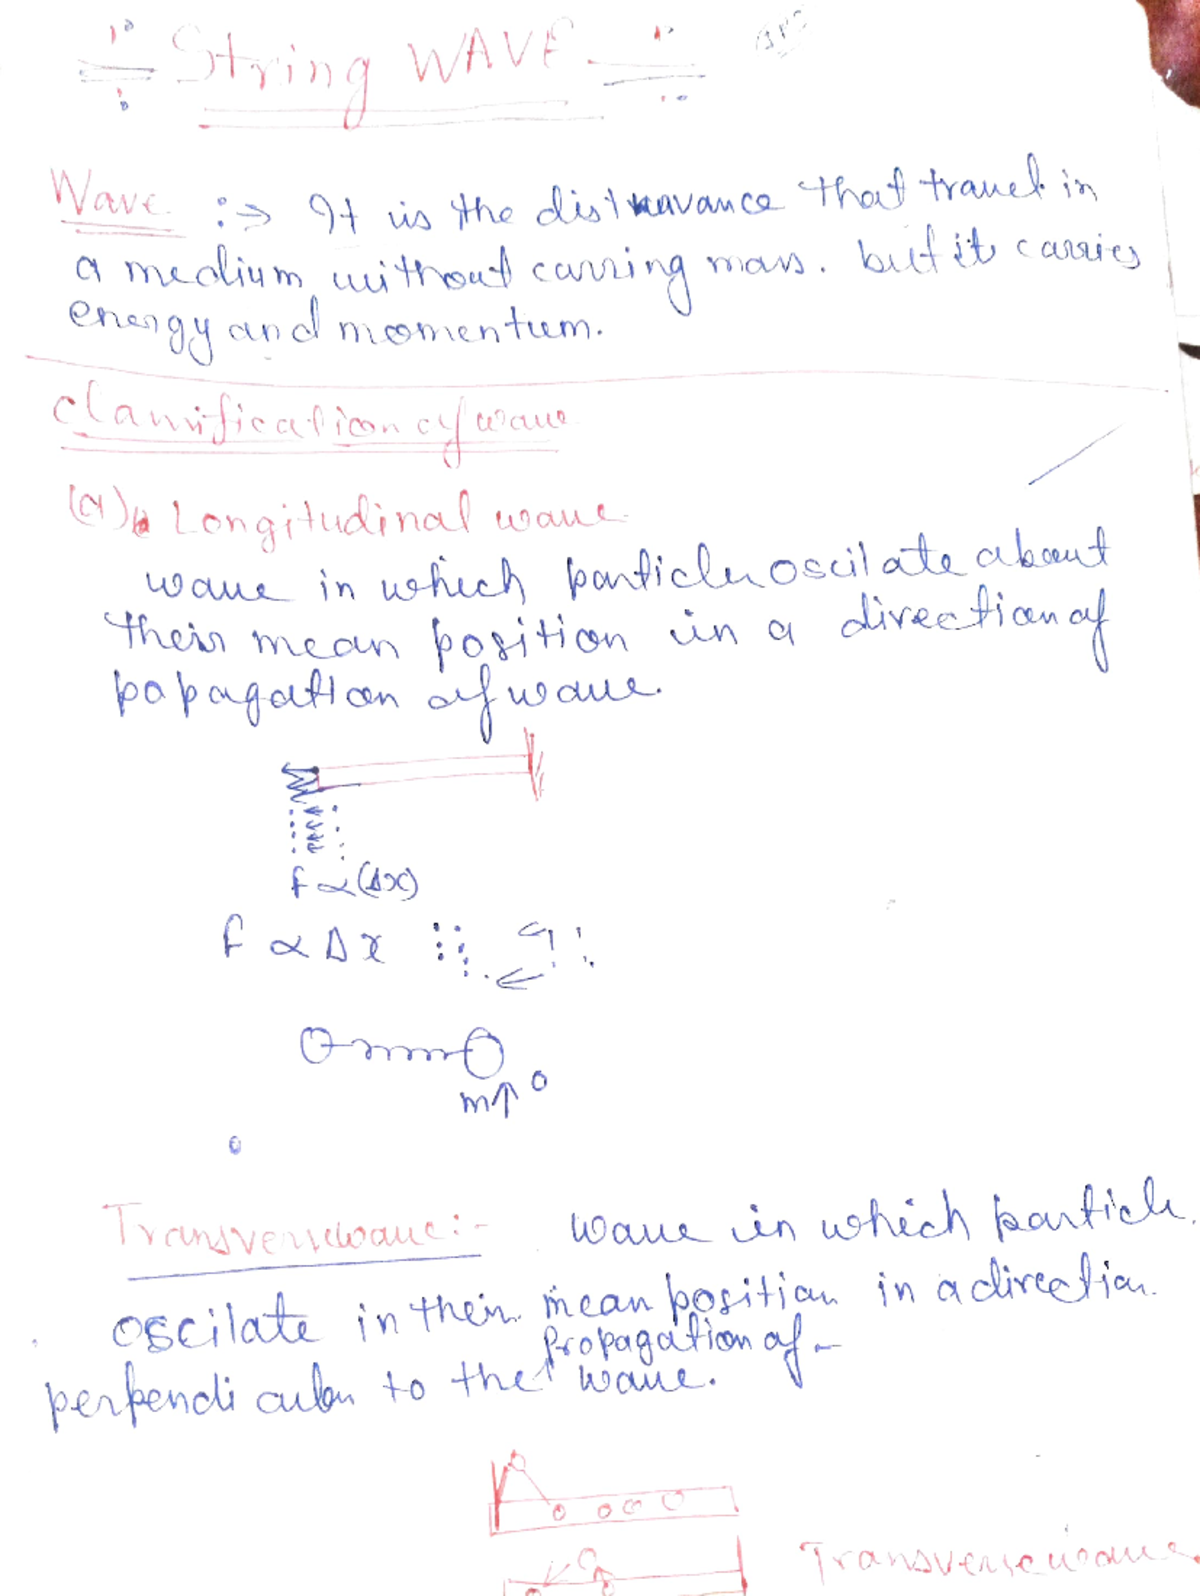 String WAVE
Wave :⇒ It is the distravance that travel in
a medium without carring mass. but it carries
energy and momentum.
classification of wave
(a) Longitudinal wave
wave in which particles oscilate about
their mean position in a direction of
papagation of wave.
F ∝ (Δx)
F ∝ Δx
m↑
Transverse wave :-
wave in which particle
oscilate in their mean position in a direction
propagation of
perpendicular to the wave.
Transverse wave